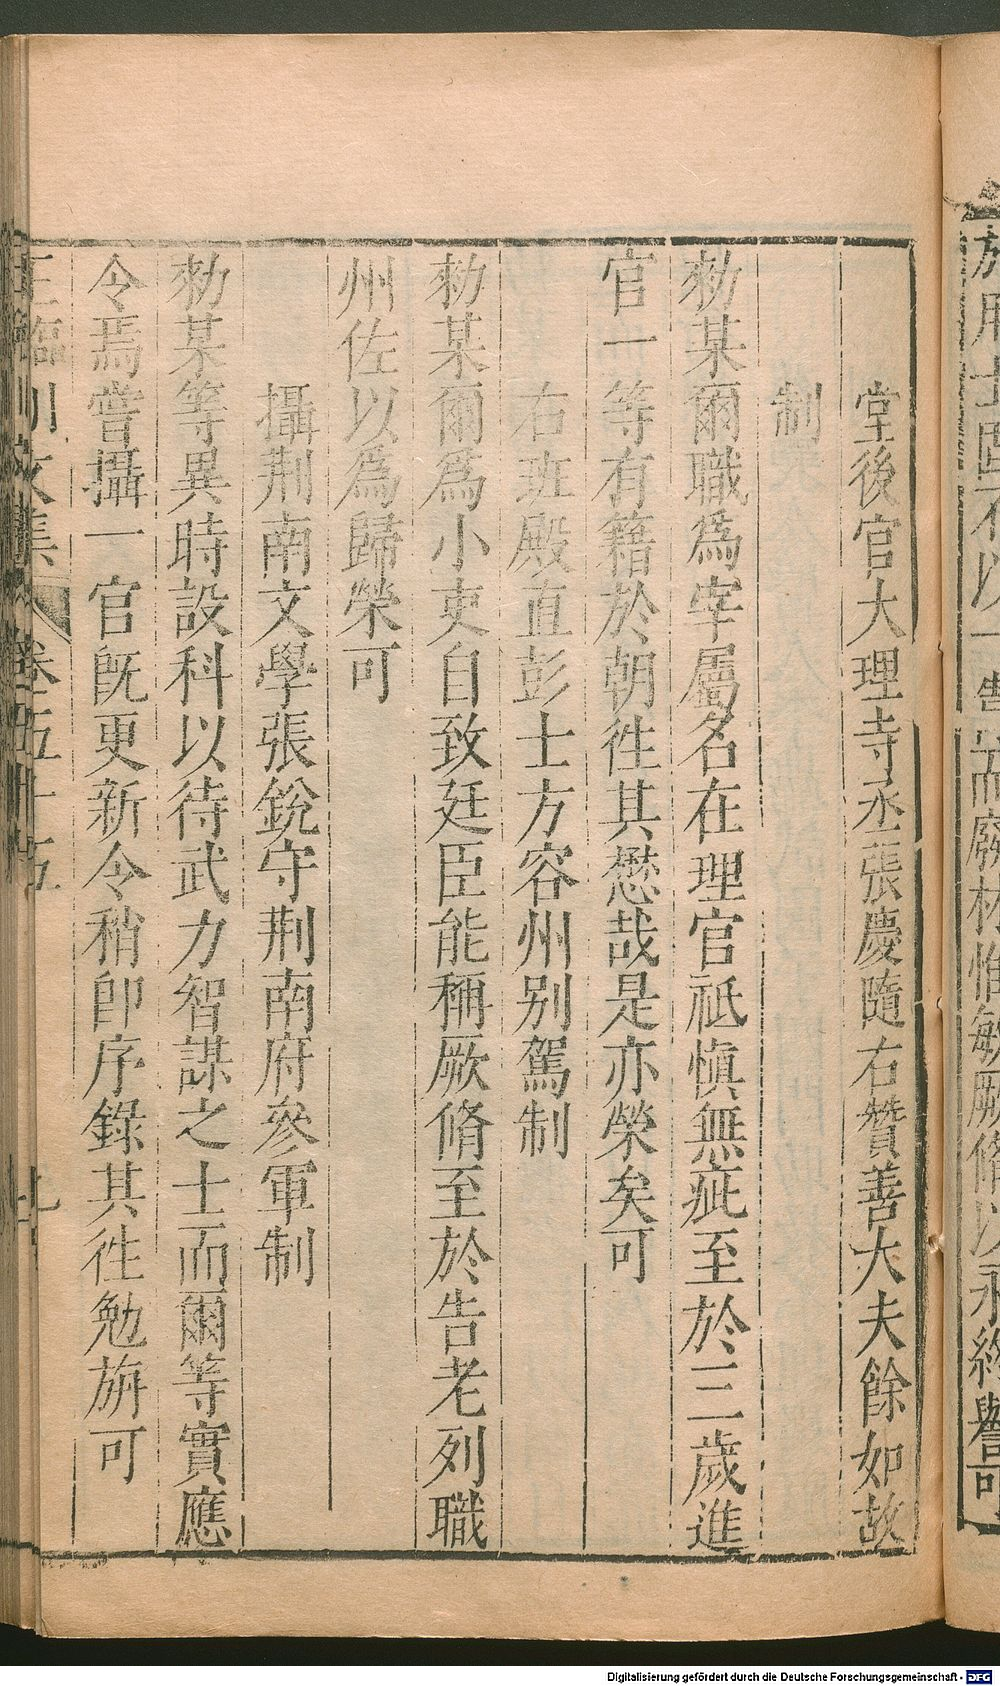 於用士固不以一眚而廢材惟敏厥脩以永終譽可
堂後官大理寺丞張慶隨右贊善大夫餘如故
制
勑某爾職爲宰屬名在理官祗慎無疵至於三歲進
官一等有籍於朝徃其懋哉是亦榮矣可
右班殿直彭士方容州别駕制
勑某爾爲小吏自致廷臣能稱厥脩至於告老列職
州佐以爲歸榮可
攝荆南文學張銳守荆南府參軍制
勑某等異時設科以待武力智謀之士而爾等實應
令焉嘗攝一官旣更新令稍卽序錄其徃勉旃可
王臨川文集 卷五十五 七
Digitalisierung gefördert durch die Deutsche Forschungsgemeinschaft - DFG